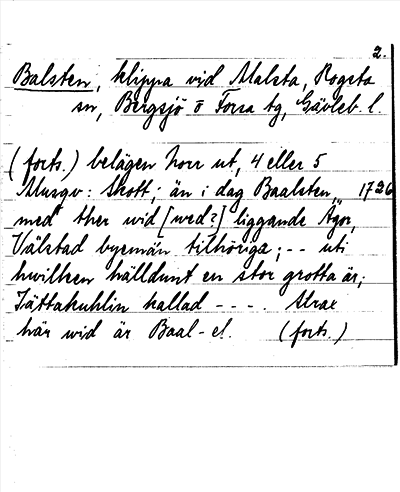 2.
Balsten, klippa vid Malsta, Rogsta
sn, Bergsjö o Forsa tg, Gävleb. l.
(forts.) belägen norr ut, 4 eller 5
Musqv: Skott; än i dag Baalsten, 1736
med ther wid [wed?] liggande Ägor,
Välstad byemän tilhöriga; -- uti
hwilken hälldunt en stor grotta är,
Jättakuhlin kallad - - - - Strax
här wid är Baal- el. (forts.)